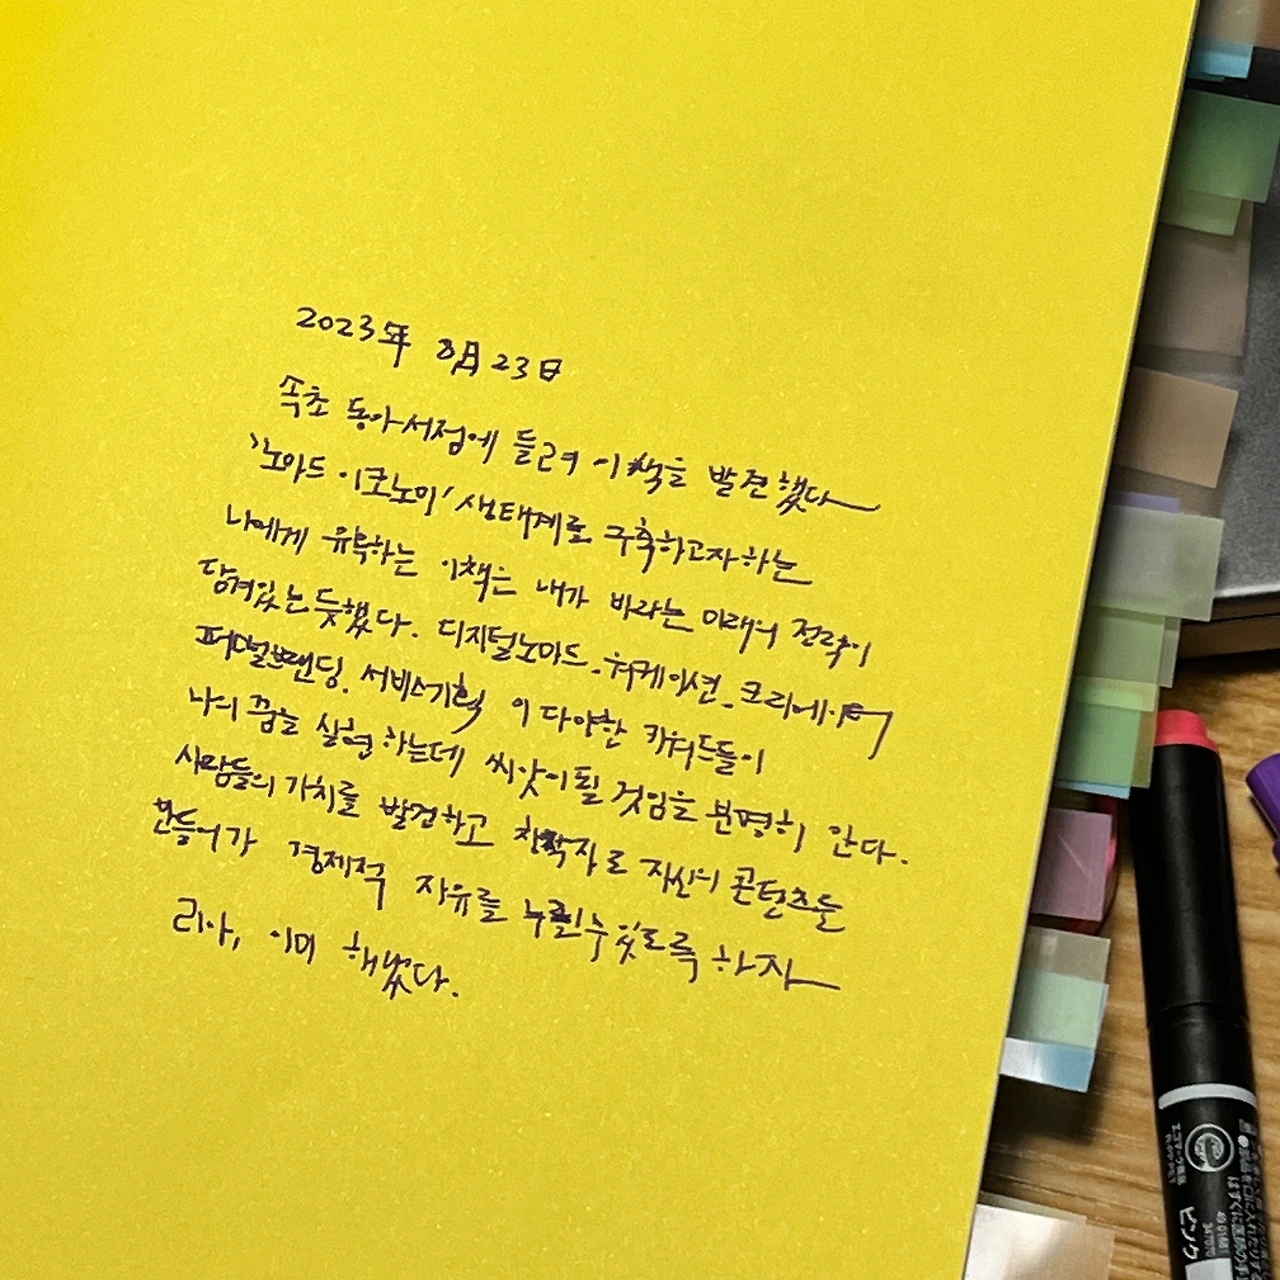 2023年 8月 23日
속초 동아서점에 들려 이 책을 발견했다
'노마드 이코노미' 생태계를 구축하고자 하는
나에게 유독하는 이 책은 내가 바라는 미래의 전략이
담겨있는 듯했다. 디지털노마드. 워케이션. 크리에이터
퍼널브랜딩. 서비스기획 이 다양한 키워드들이
나의 꿈을 실현 하는데 씨앗이 될 것임을 분명히 안다.
사람들의 가치를 발견하고 창작자로 자신의 콘텐츠를
만들어가 경제적 자유를 누릴 수 있도록 하자
리아, 이미 해냈다.
ピンク